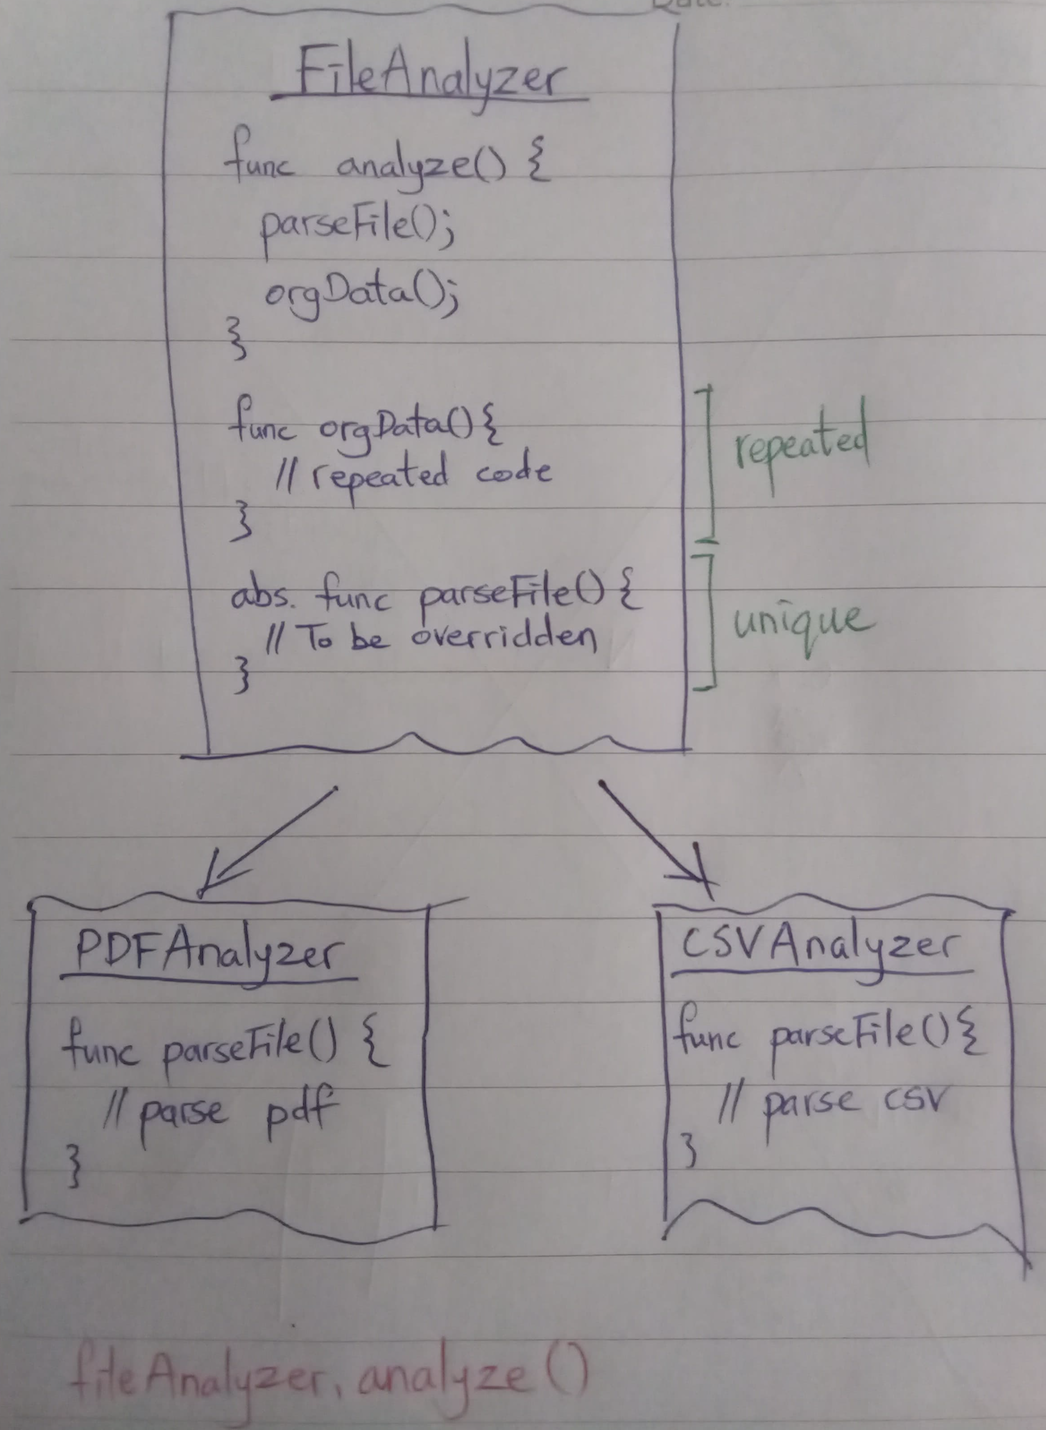 Date:
FileAnalyzer
func analyze() {
parseFile();
orgData();
}
func orgData() {
// repeated code
}
repeated
abs. func parseFile() {
// To be overridden
}
unique
PDFAnalyzer
func parseFile() {
// parse pdf
}
CSVAnalyzer
func parseFile() {
// parse csv
}
fileAnalyzer.analyze()